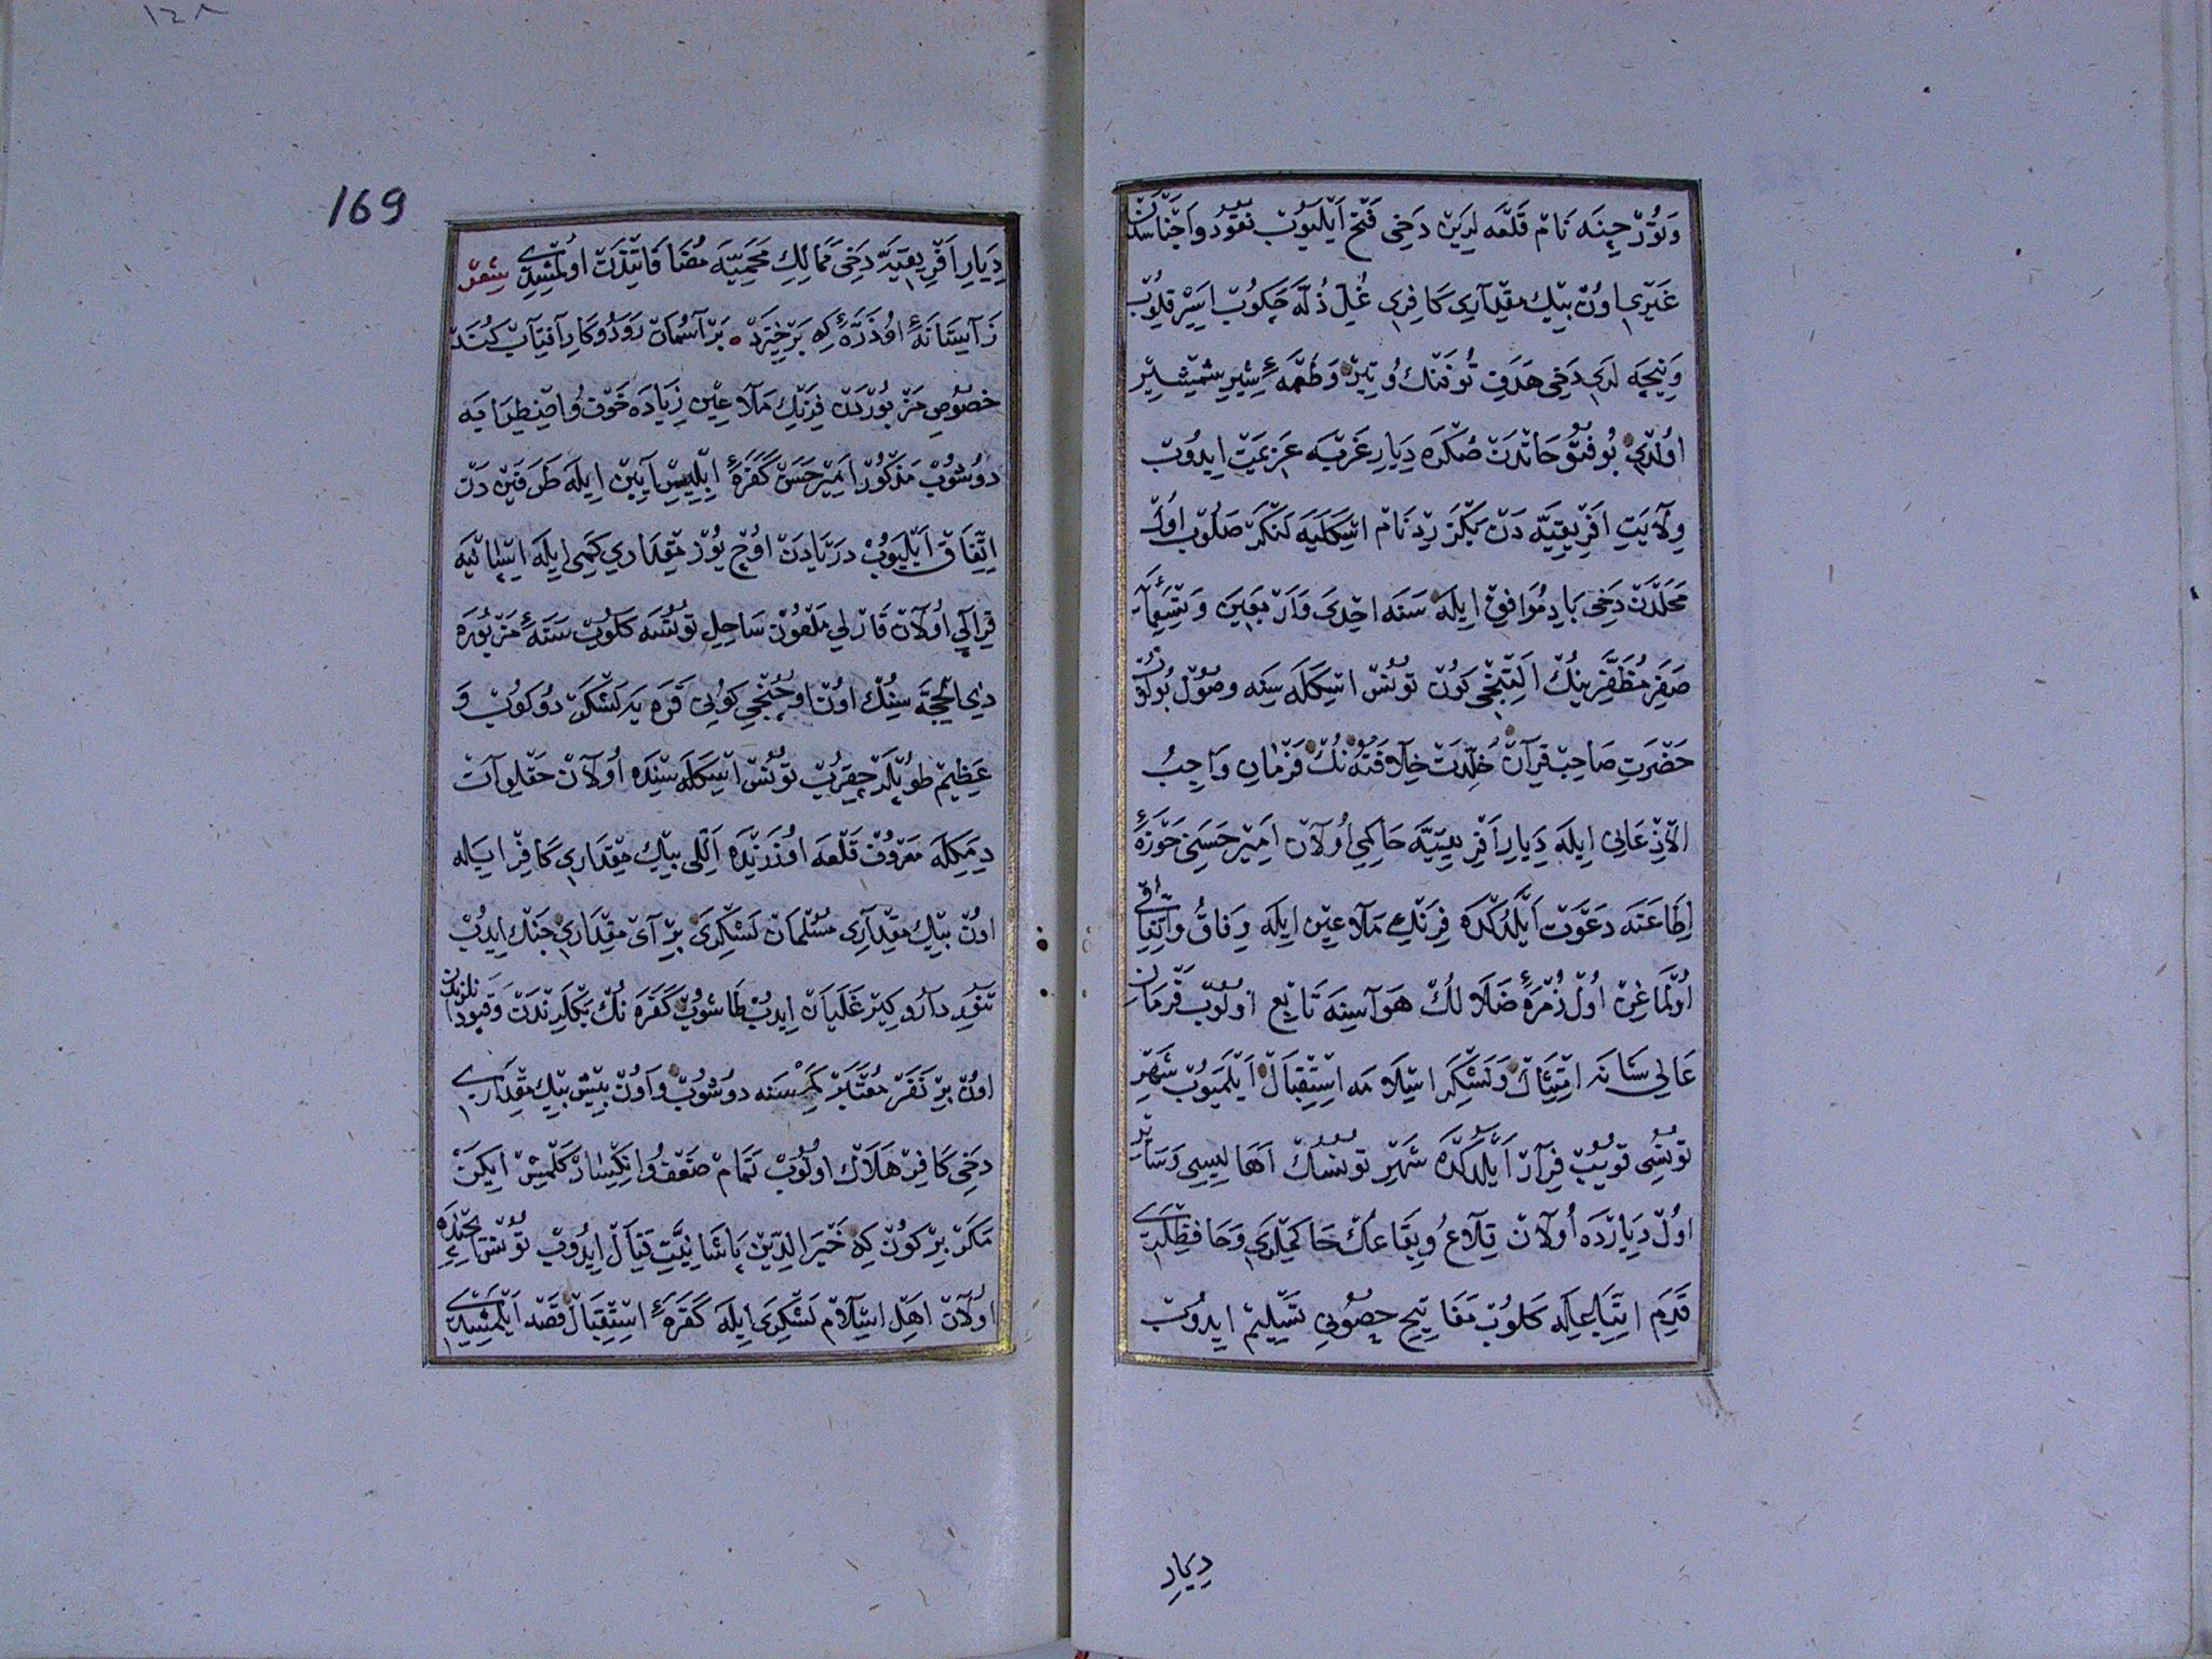 وبورجنه نام قلعه لرین دخی فتح ایلیوب نقود و اجناسدن
غیری اون بیك مقداری کافری غل ذله چکوب اسیر قلوب
ونیجه لری دخی هدف توفنك و تیر و طعمهٔ شیر شمشیر
اولدی بو فتوحاتدن صکره دیار غربه عزیمت ایدوب
ولایت افریقیه دن بنزرد نام اسکله یه لنکر صلوب اول
محلدن دخی باد موافق ایله سنه احدی واربعین وتسعمائه
صفر مظفرینك التنجی کون تونس اسکله سنه وصول بولوب
حضرت صاحب قرآن خلدت خلافته نك فرمان واجب
الاذعانی ایله دیار افریقیه حاکمی اولان امیر حسنی حوزهٔ
اطاعته دعوت ایلدکده فرنك ملاعین ایله وفاق واتفاقی
اولماغن اول زمرهٔ ضلالك هواسنه تابع اولوب فرمان
عالی شانه امتثال ولشکر اسلامه استقبال ایلمیوب شهر
تونسی قویوب فرار ایلدکده شهر تونسك اهالیسی وسائر
اول دیارده اولان قلاع وبقاعك حاکملری وحافظلری
قدم اتباعله کلوب مفاتیح حصونی تسلیم ایدوب
دیار
169
دیار افریقیه دخی ممالك محمیه مضافاتندن اولمشیدی شعر
ز آستانهٔ او ذرهٔ که برخیزد بر آسمان رود و کار آفتاب کند
خصوص مزبوردن فرنك ملاعین زیاده خوف و اضطرابه
دوشوب مذکور امیر حسن کفرهٔ ابلیس آیین ایله طرفین دن
اتفاق ایلیوب دریادن اوج یوز مقداری کمی ایله اسپانیه
قرالی اولان قارلی ملعون ساحل تونسه کلوب سنهٔ مزبوره
ذی الحجه سنك اون اوچنجی کونی قره یه لشکر دوکوب و
عظیم طوپلر چقروب تونس اسکله سنده اولان حلق الواد
دیمکله معروف قلعه اوزرنده اللی بیك مقداری کافر ایله
اون بیك مقداری مسلمان لشکری بر آی مقداری جنك ایدوب
تنور دار و کیر غلیان ایدوب طاشوب کفره نك بکلرندن وقپودانلرندن
اون بر نفر معتبر کمسنه دوشوب واون بیش بیك مقداری
دخی کافر هلاك اولوب تمام ضعف و انکسار کلمش ایکن
مکر بر کون که خیر الدین پاشا نیت قتال ایدوب تونس ایچنده
اولان اهل اسلام لشکری ایله کفرهٔ استقبال قصد ایلمشیدی